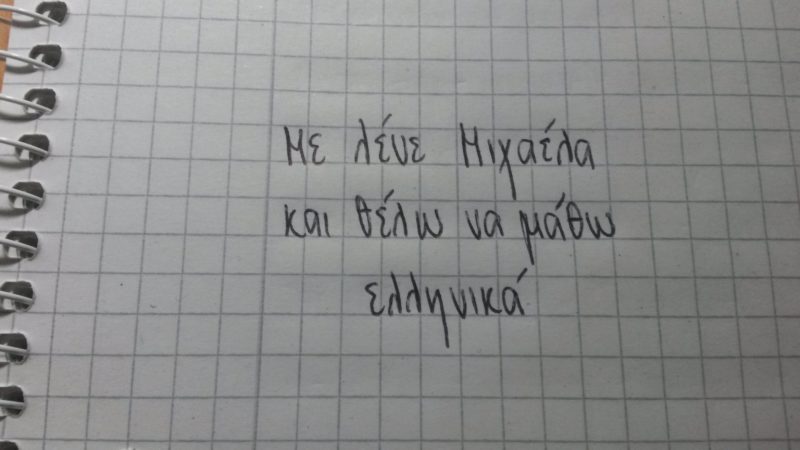 Με λένε Μιχαέλα
και θέλω να μάθω
ελληνικά